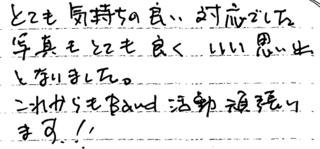 とても気持ちの良い対応でした
写真もとても良く いい思い出
となりました。
これからもBand活動頑張り
ます!!